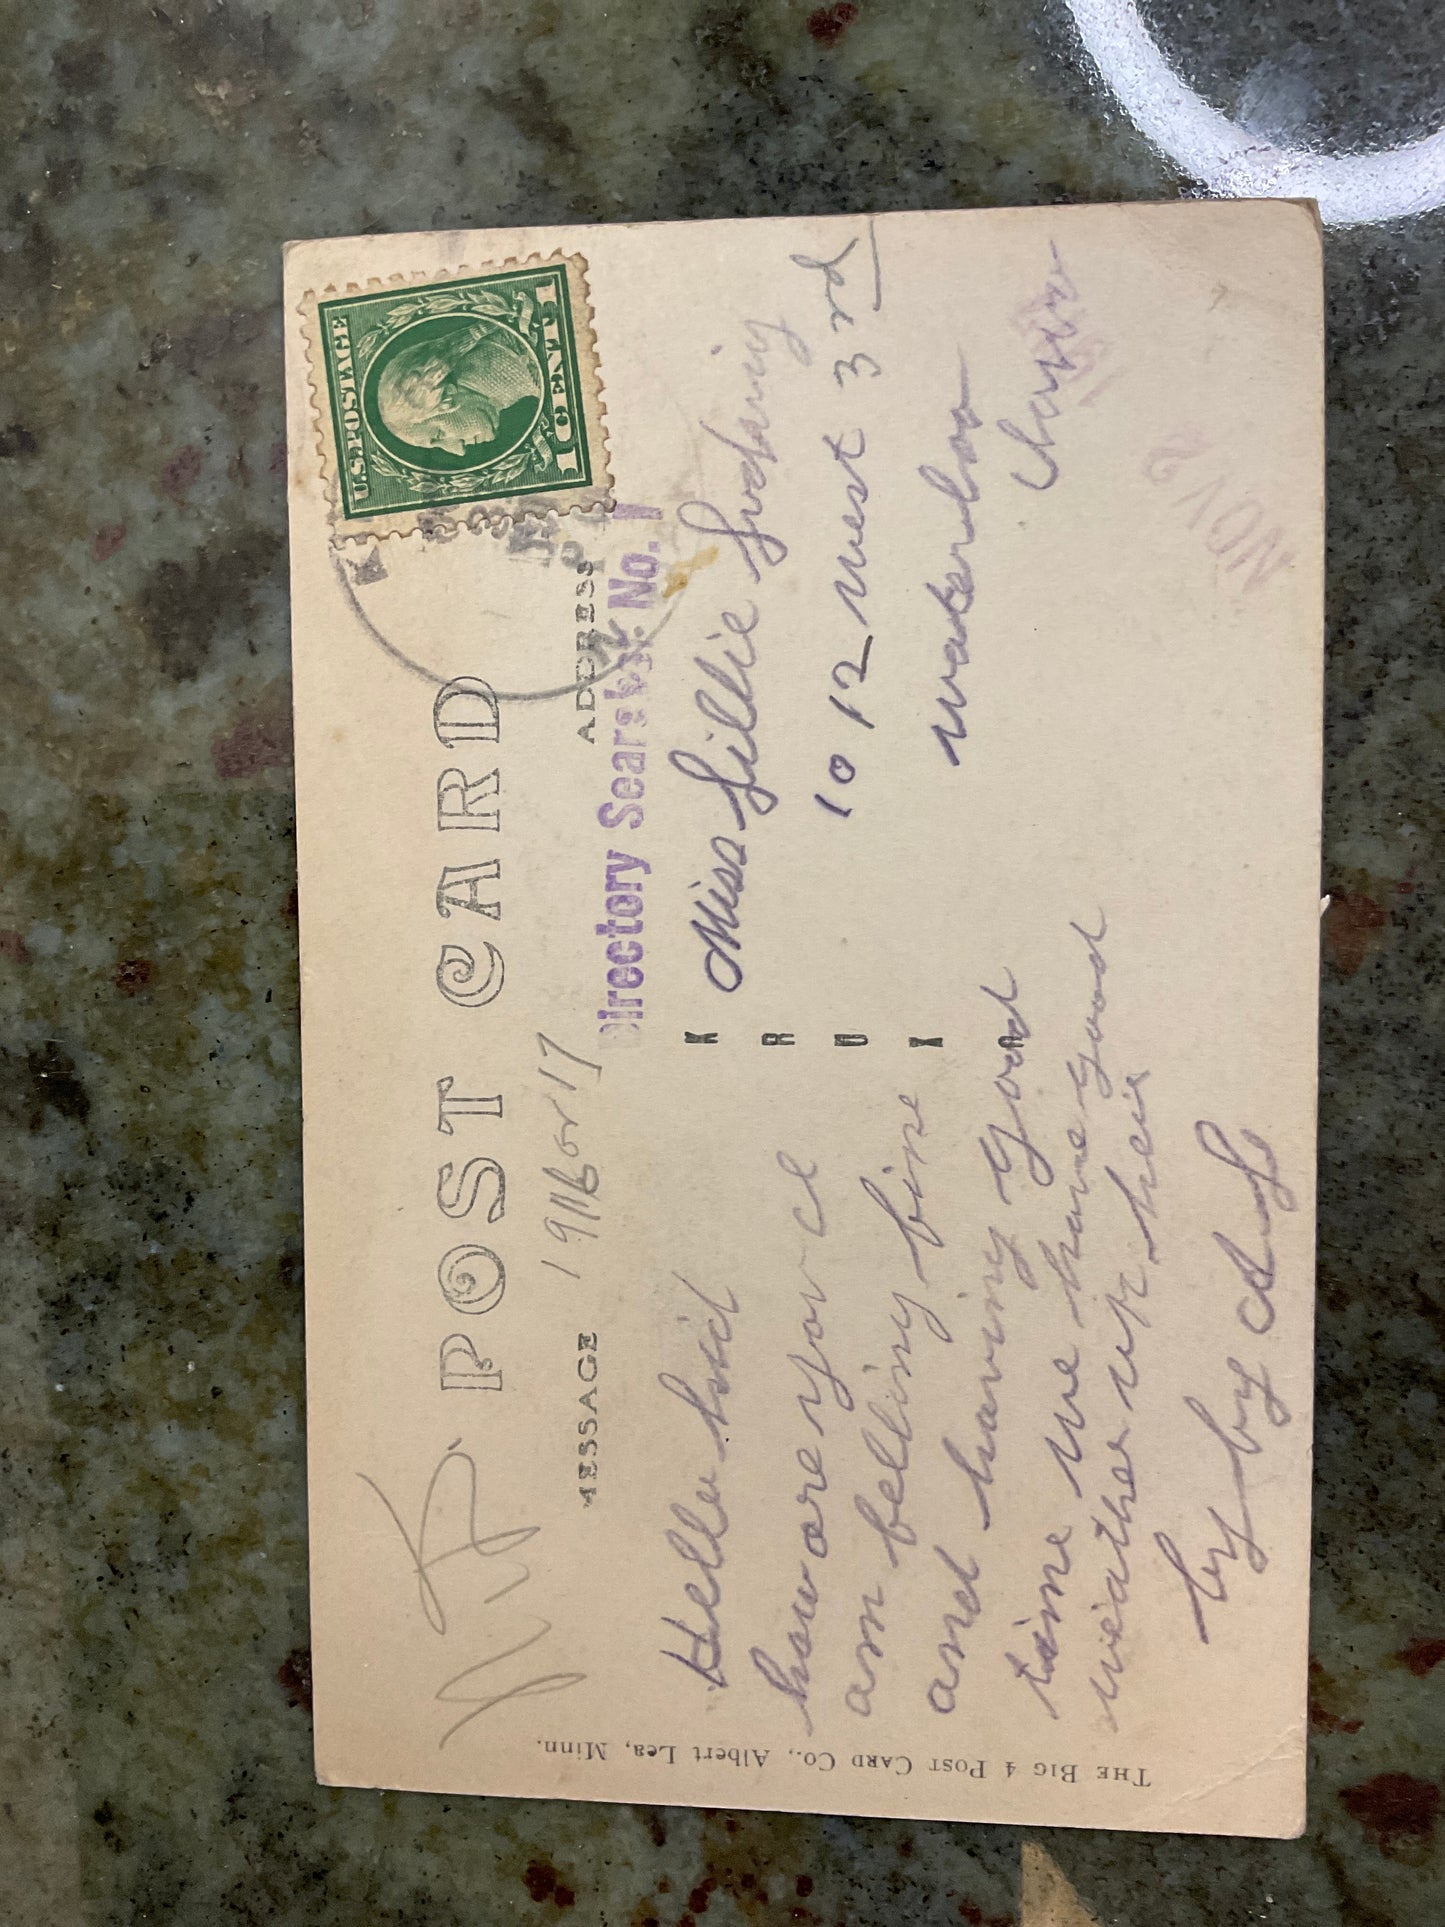 POST CARD
1916 or 17
MESSAGE
ADDRESS
Directory Searcher No. 1
U.S. POSTAGE
1 CENT 1
K
R
U
X
Hello kid
how are you I
am felling fine
and having good
time we have good
weather up heir
by by
Miss Lillie
1012 west 3rd
waterloo
Iowa
NOV 2
THE BIG 4 POST CARD CO., Albert Lea, Minn.